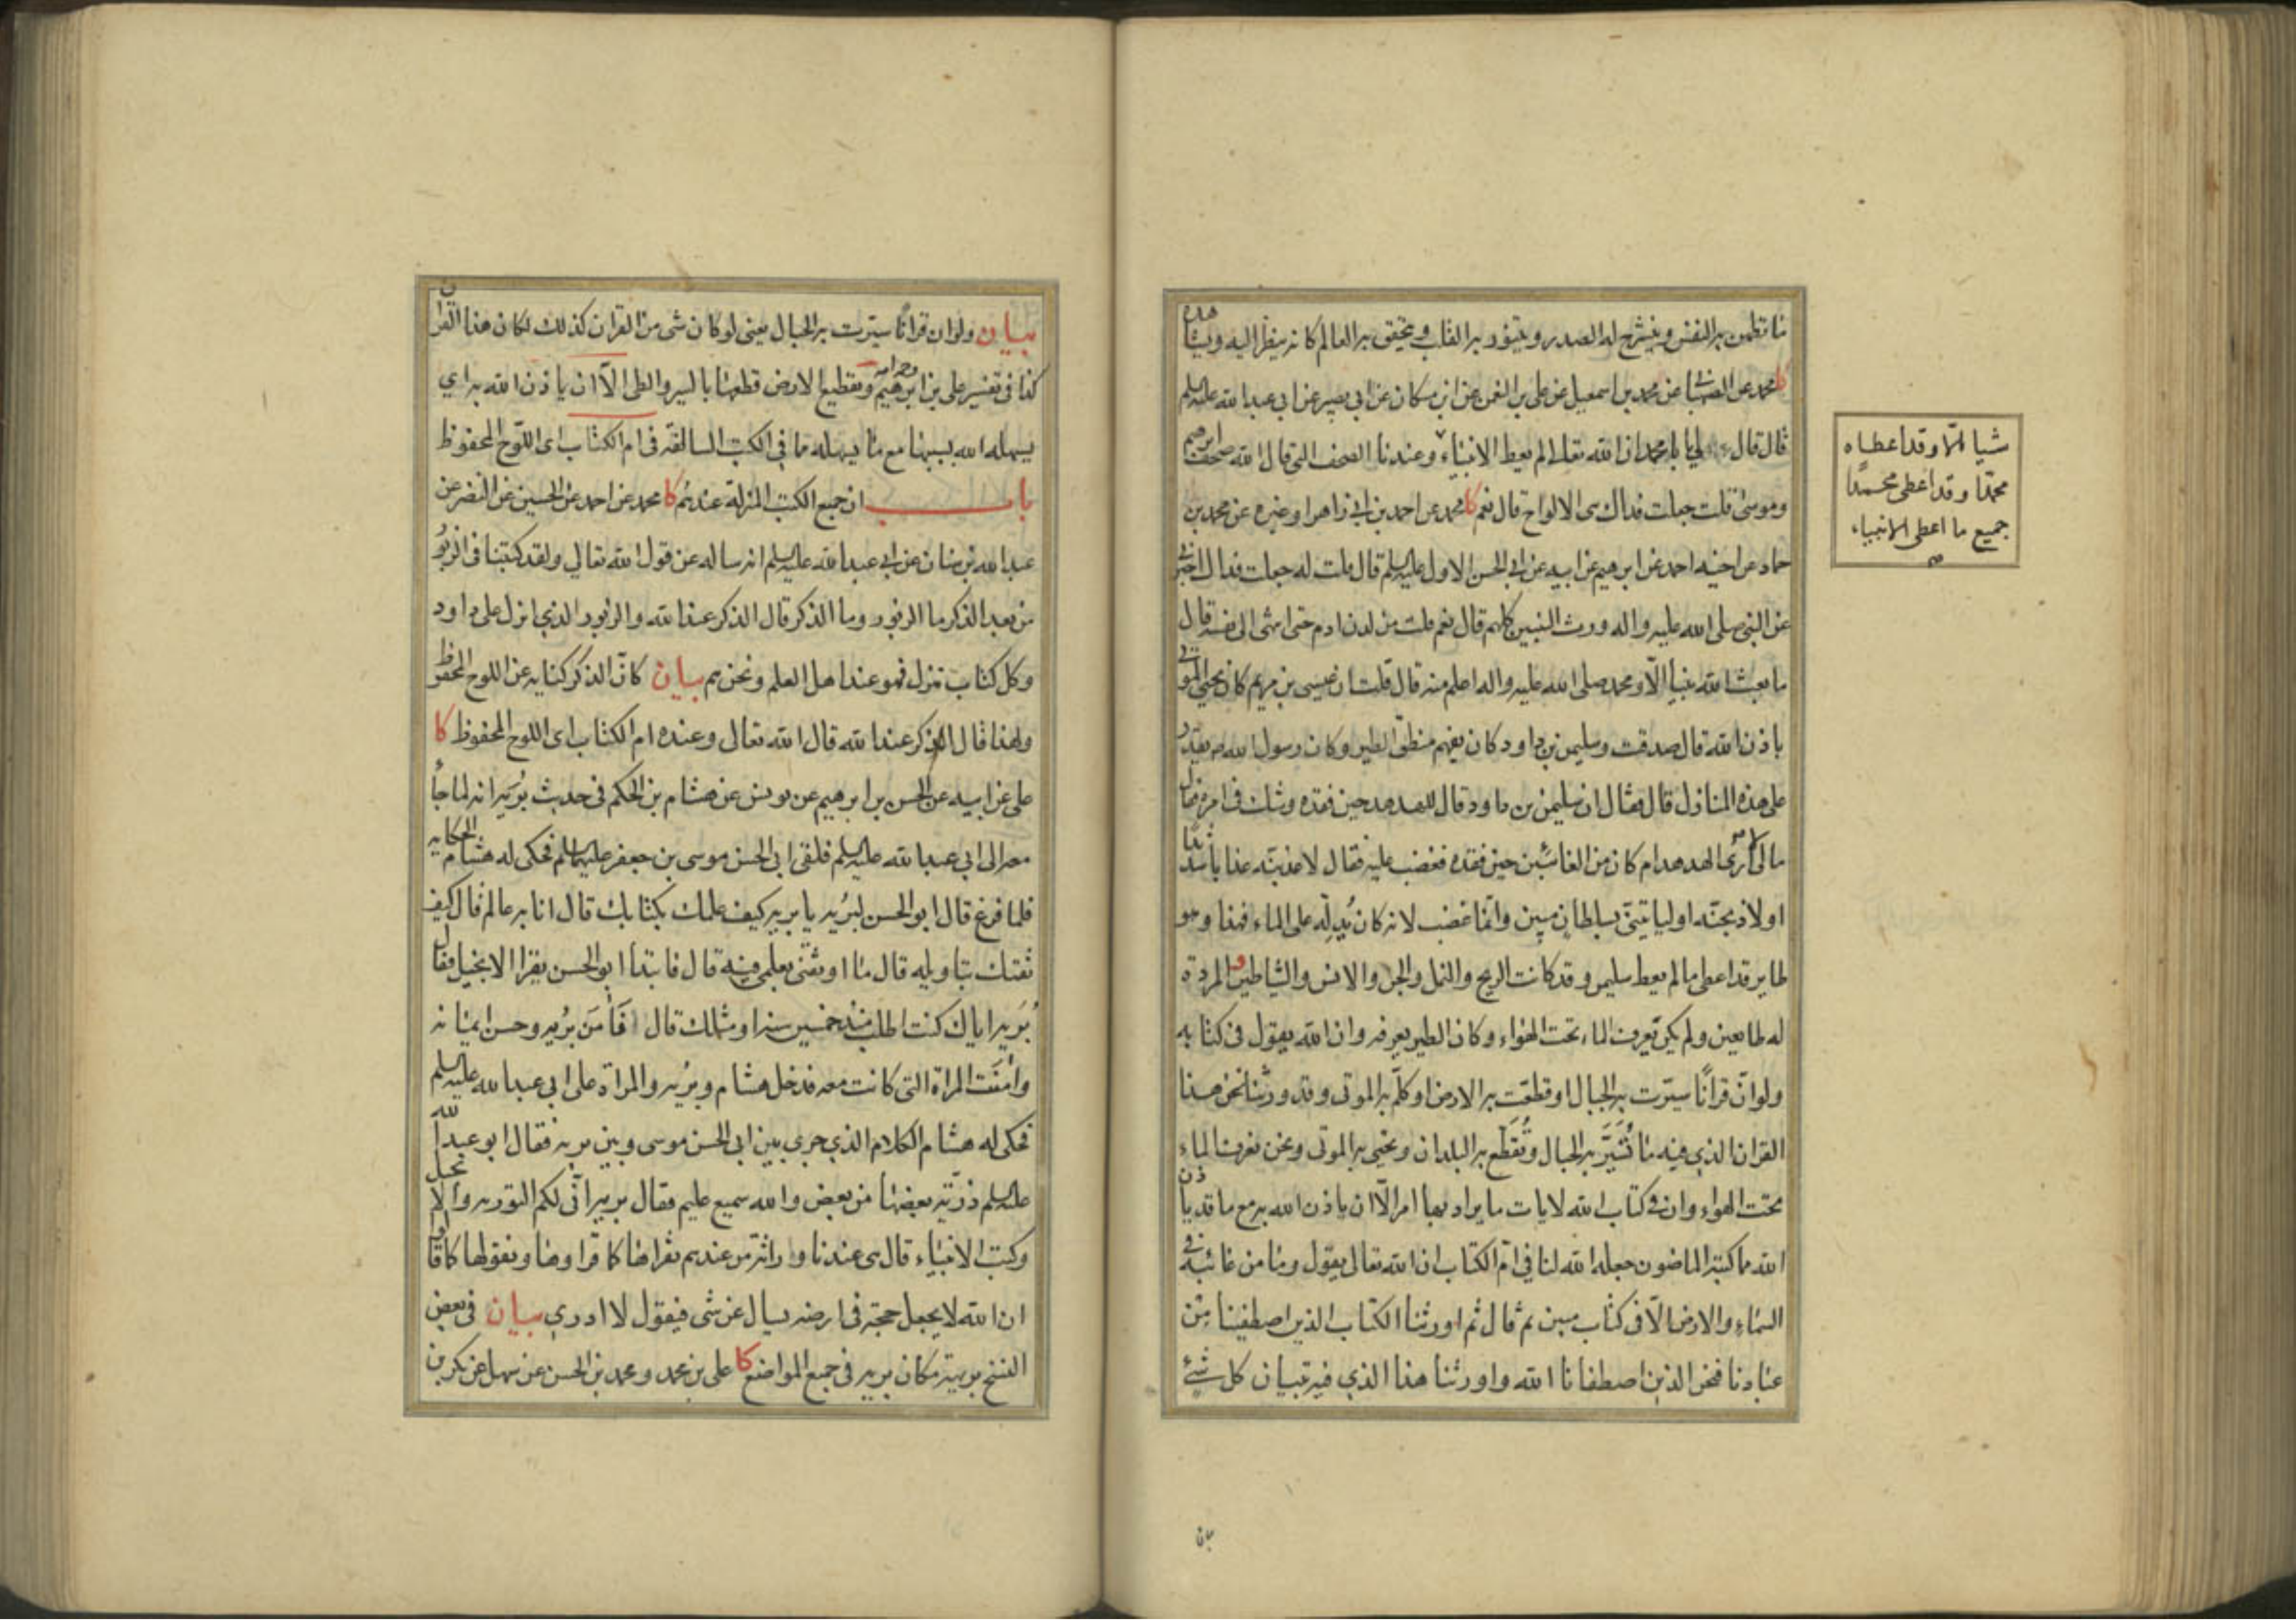 ما تطمئن به النفس وينشرح له الصدر ويتنور به القلب ويتحقق به العالم كانه ينظر اليه ويشاهده
كا محمد عن الصهباني عن محمد بن اسمعيل عن علي بن النعمن عن ابن مسكان عن ابي بصير عن ابي عبد الله عليه السلم
قال قال لي يا با محمد ان الله تعالى لم يعط الانبياء وعندنا الصحف التي قال الله صحف ابرهيم
وموسى قلت جعلت فداك هي الالواح قال نعم كا محمد عن احمد بن ابي زاهر او غيره عن محمد بن
حماد عن اخيه احمد عن ابرهيم عن ابيه عن ابي الحسن الاول عليه السلم قال قلت له جعلت فداك اخبرني
عن النبي صلى الله عليه واله ورث النبيين كلهم قال نعم قلت من لدن ادم حتى انتهى الى نفسه قال
ما بعث الله نبيا الّا ومحمد صلى الله عليه واله اعلم منه قال قلت ان عيسى بن مريم كان يحيي الموتى
باذن الله قال صدقت وسليمن بن داود كان يفهم منطق الطير وكان رسول الله ص يقدر
على هذه المنازل قال فقال ان سليمن بن داود قال للهدهد حين فقده وشك في امره فقال
ما لي لا ارى الهدهد ام كان من الغائبين حين فقده فغضب عليه فقال لاعذبنّه عذابا شديدا
او لاذبحنّه او لياتيني بسلطان مبين وانما غضب لانه كان يُدلّه على الماء فهذا وهو
طاير قد اعطي ما لم يعط سليمن وقد كانت الريح والنمل والجن والانس والشياطين و المردة
له طايعين ولم يكن يعرف الماء تحت الهواء وكان الطير يعرفه وان الله يقول في كتابه
ولو انّ قرانًا سيّرت به الجبال او قطّعت به الارض او كلّم به الموتى وقد ورثنا نحن هذا
القران الذي فيه ما تُسَيَّر به الجبال وتُقَطّع به البلدان وتحيى به الموتى ونحن نعرف الماء
تحت الهواء وان في كتاب الله لايات ما يراد بها امر الّا ان ياذن الله به مع ما قد ياذن
الله مما كتبه الماضون جعله الله لنا في امّ الكتاب ان الله تعالى يقول وما من غائبة في
السماء والارض الّا في كتاب مبين ثم قال ثم اورثنا الكتاب الذين اصطفينا من
عبادنا فنحن الذين اصطفانا الله واورثنا هذا الذي فيه تبيان كل شيء
بيان
شيا الّا وقد اعطاه
محمدًا وقد اعطى محمدًا
جميع ما اعطى الانبياء
ص
بيان ولو ان قرانًا سيّرت به الجبال يعني لو كان شي من القران كذلك لكان هذا القران
كذا في تفسير علي بن ابرهيم رحمه الله وتقطيع الارض قطعها بالسير والطي الّا ان ياذن الله به اي
يسهله الله بسببها مع ما يسهله ما في الكتب السالفة في ام الكتاب اى اللوح المحفوظ
باب ان جميع الكتب المنزلة عندهم كا محمد عن احمد عن الحسين عن النضر عن
عبد الله بن سنان عن ابي عبد الله عليه السلم انه ساله عن قول الله تعالي ولقد كتبنا في الزبور
من بعد الذكر ما الزبور وما الذكر قال الذكر عند الله والزبور الذي انزل على داود
وكل كتاب نزل فهو عند اهل العلم ونحن هم بيان كانّ الذكر كنايه عن اللوح المحفوظ
ولهذا قال الذكر عند الله قال الله تعالى وعنده ام الكتاب اى اللوح المحفوظ كا
علي عن ابيه عن الحسن بن ابرهيم عن يونس عن هشام بن الحكم في حديث بُرَيه انه لما جاء
معه الى ابي عبد الله عليه السلم فلقى ابي الحسن موسى بن جعفر عليهما السلم فحكى له هشام الحكايه
فلما فرغ قال ابو الحسن لبُرَيه يا بريه كيف علمك بكتابك قال انا به عالم قال كيف
ثقتك بتاويله قال ما اوثقني بعلمي فيه قال فابتدأ ابو الحسن يقرا الانجيل فقال
بُرَيه اياك كنت اطلب منذ خمسين سنه او مثلك قال فَآمَن بُريه وحسن ايمانه
وامنَت المراة التي كانت معه فدخل هشام وبُريه والمراة على ابي عبد الله عليه السلم
فحكى له هشام الكلام الذي جرى بين ابي الحسن موسى وبين بريه فقال ابو عبد الله
عليه السلم ذرّية بعضها من بعض والله سميع عليم فقال بريه انّى لكم التورية والانجيل
وكتب الانبياء قال هي عندنا وراثة من عندهم نقراها كما قراوها ونقولها كما قالوا
ان الله لا يجعل حجة في ارضه يسال عن شي فيقول لا ادري بيان في بعض
النسخ بريهة مكان بريه في جميع المواضع كا علي بن محمد ومحمد بن الحسن عن سهل عن بكر بن